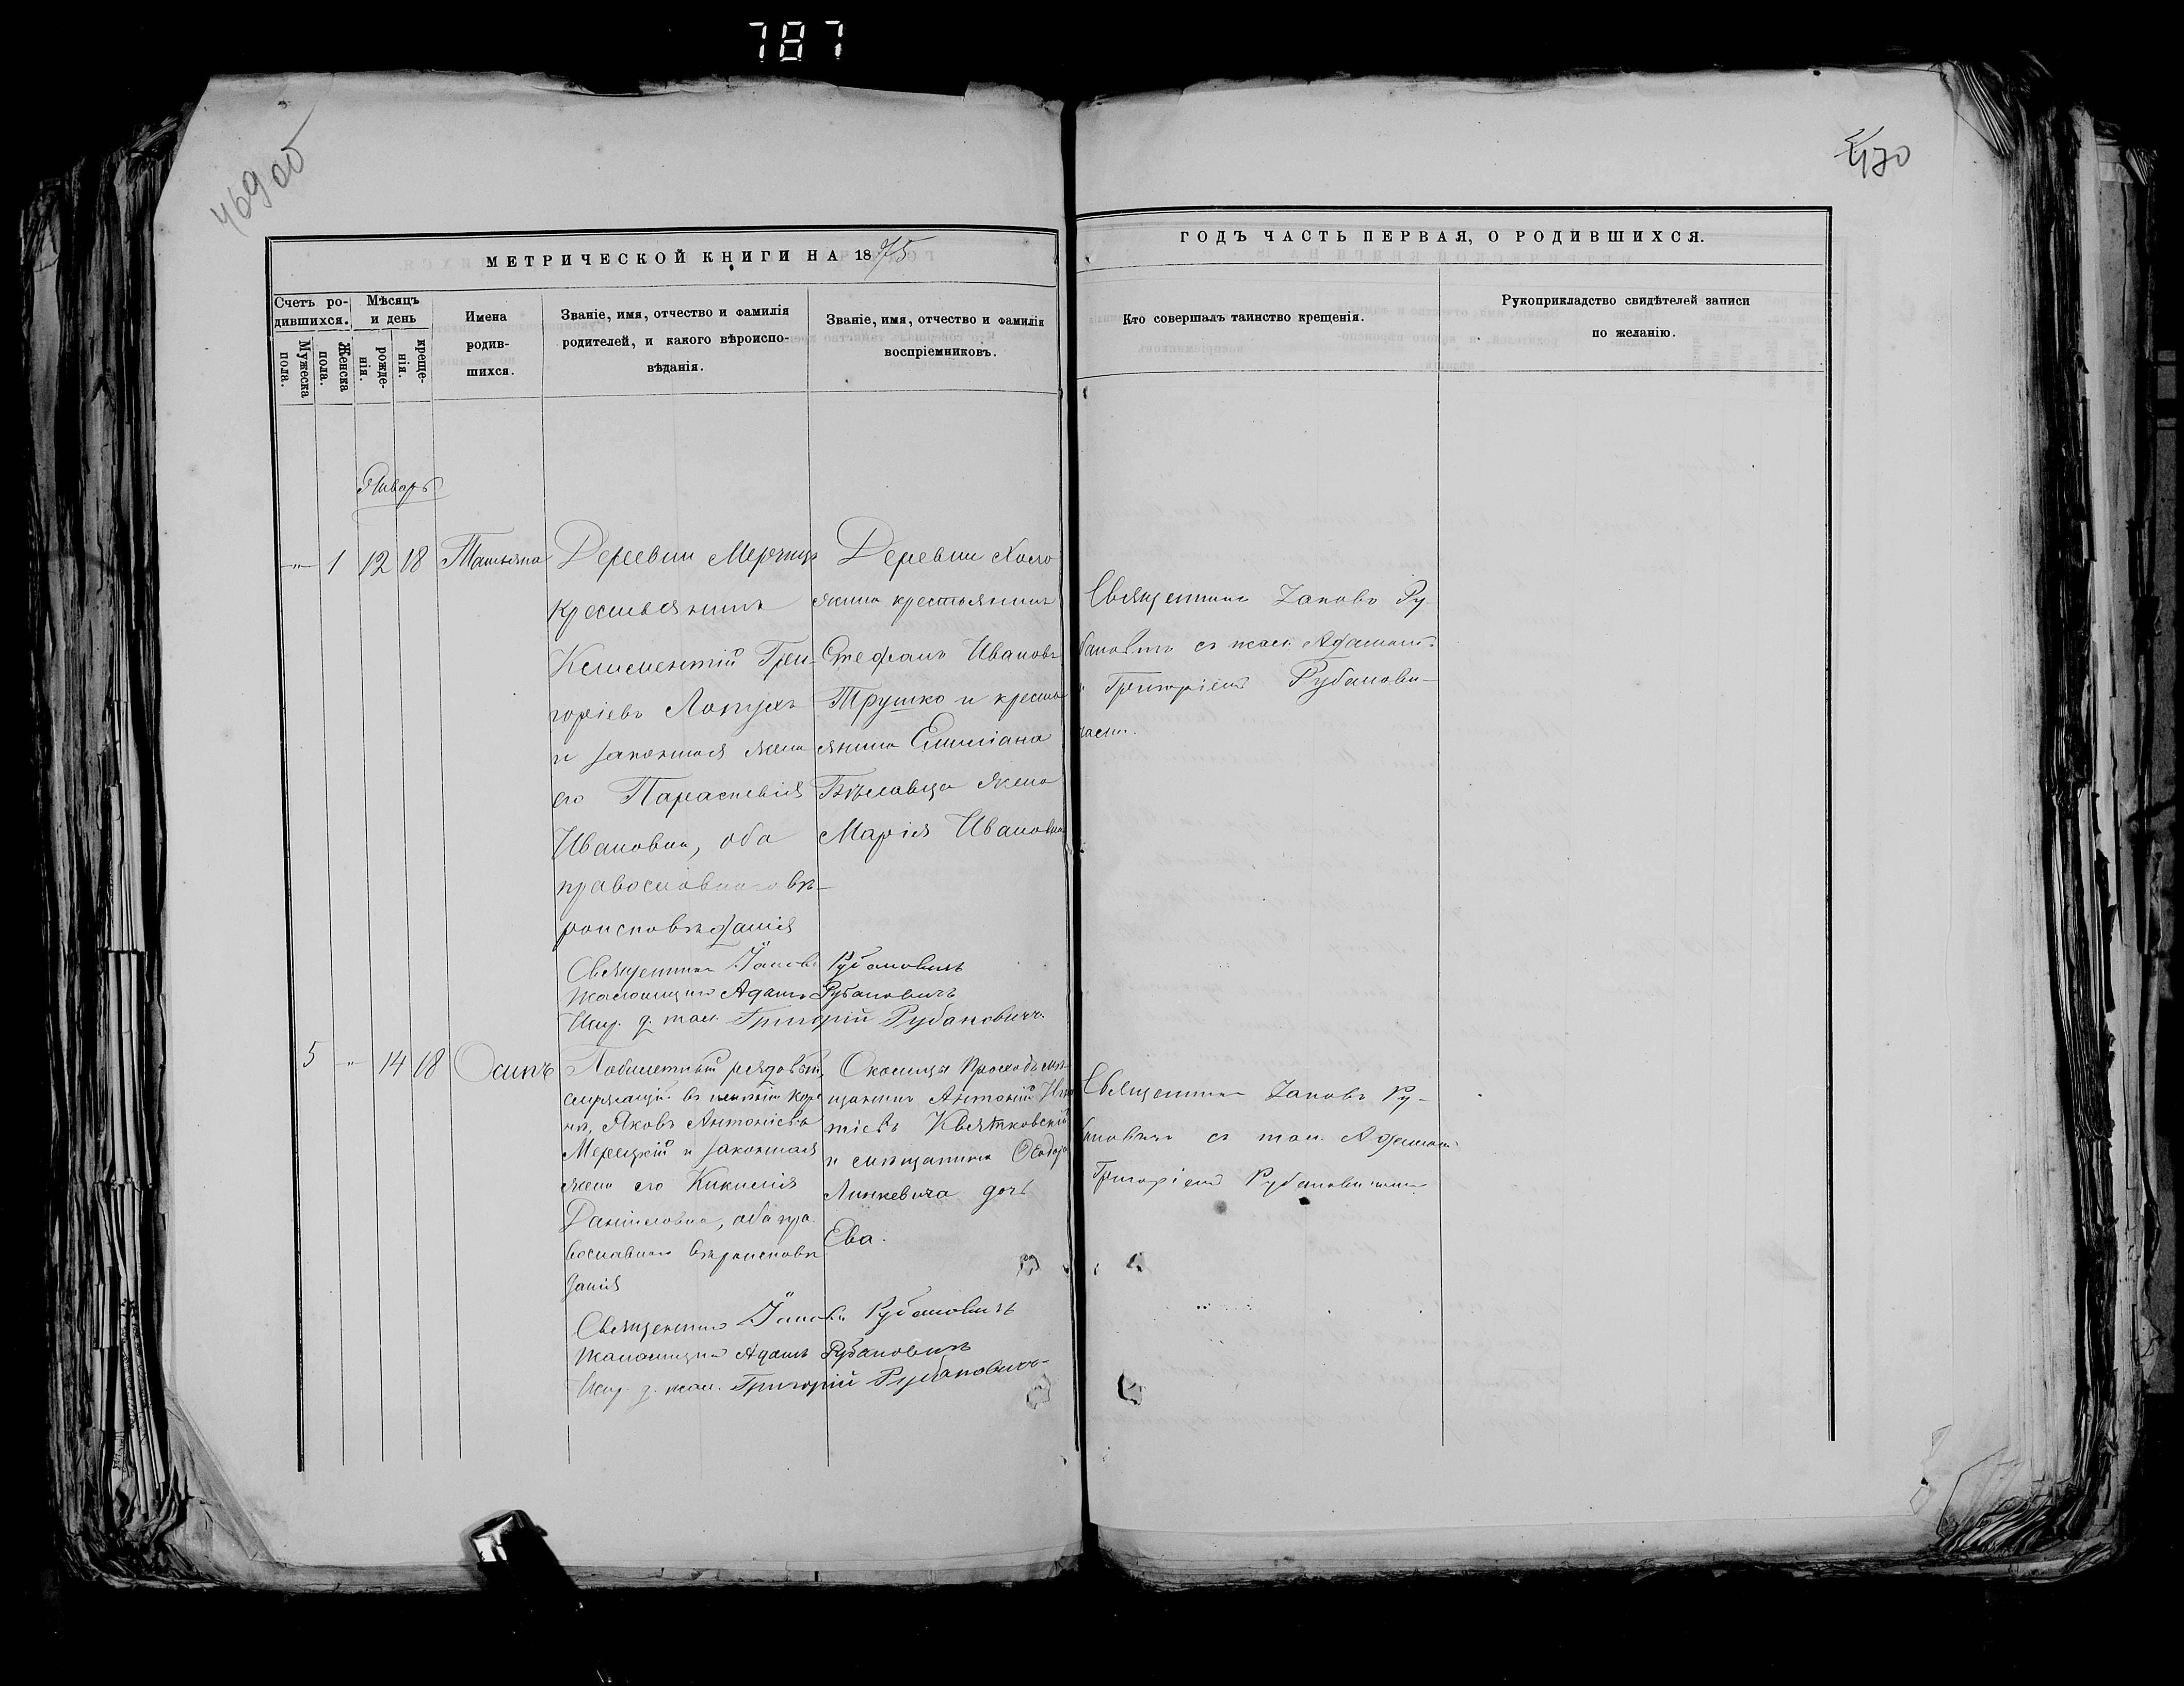 787
469 об
470
МЕТРИЧЕСКОЙ КНИГИ НА 1875
ГОДЪ ЧАСТЬ ПЕРВАЯ, О РОДИВШИХСЯ.
Счетъ ро-
дившихся.
Мужеска
пола.
Женска
пола.
Мѣсяцъ
и день
рожде-
нія.
креще-
нія.
Имена
родив-
шихся.
Званіе, имя, отчество и фамилія
родителей, и какого вѣроиспо-
вѣданія.
Званіе, имя, отчество и фамилія
воспріемниковъ.
Кто совершалъ таинство крещенія.
Рукоприкладство свидѣтелей записи
по желанію.
Январь
-"- 1 12 18 Татьяна
Деревни
крестьянинъ
Климентій Григ-
оріевъ Лопухъ
и законная жена
его Параскевія
Ивановна, оба
православнаго вѣ-
роисповѣданія
Деревни
крестьянинъ
Стефанъ Ивановъ
Трушко и кресть
янина Емиліана
Бѣлавца жена
Марія Ивановна
Священникъ Іаковъ Ру-
бановичъ съ псал. Адамомъ
и Григоріемъ Рубанови-
чами.
Священникъ Іаковъ Рубановичъ
Псаломщикъ Адамъ Рубановичъ
Исп. д. псал. Григорій Рубановичъ.
5 " 14 18 Осипъ
рядовый,
въ
Яковъ Антоніевъ
Мерецкій и законная
жена его Кикилія
Даніиловна, оба пра-
вославнаго вѣроисповѣ
данія
Околицы мѣ-
щанинъ Антоній
Квятковскій
и мѣщанина Ѳеодора
Линкевича дочь
Ева.
Священникъ Іаковъ Ру-
бановичъ съ псал. Адамомъ
Григоріемъ Рубановичами
Священникъ Іаковъ Рубановичъ
Псаломщикъ Адамъ Рубановичъ
Исп. д. псал. Григорій Рубановичъ